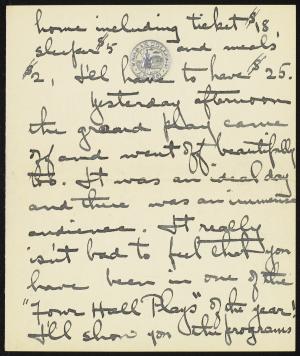 home including ticket $18
sleeper $5 and meals
$2, I'll have to have $25.
Yesterday afternoon
the greand play came
off and went off beautifully
too. It was an ideal day
and there was an immence
audience. It really
isn't bad to feel that you
have been in one of the
"Tower Hall Plays" of the year!
I'll show you the programs